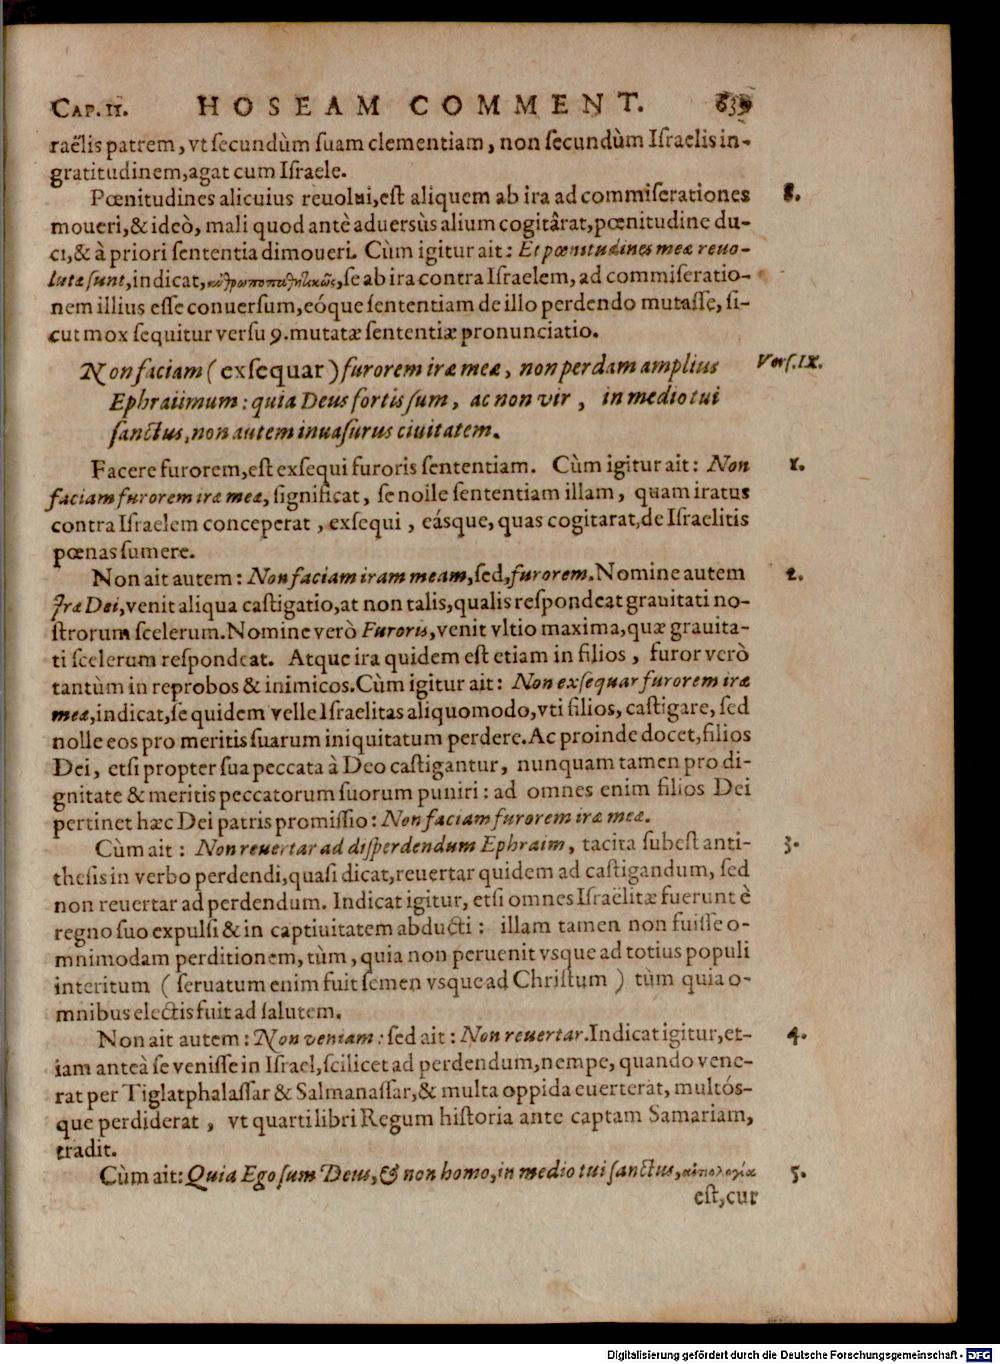 CAP. II. HOSEAM COMMENT. 639
raëlis patrem, vt ſecundùm ſuam clementiam, non ſecundùm Iſraelis in-
gratitudinem, agat cum Iſraele.
Pœnitudines alicuius reuolui, eſt aliquem ab ira ad commiſerationes 8.
moueri, & ideò, mali quod antè aduersùs alium cogitârat, pœnitudine du-
ci, & à priori ſententia dimoueri. Cùm igitur ait: Et pœnitudines meæ reuo-
lutæ ſunt, indicat, ſe ab ira contra Iſraelem, ad commiſeratio-
nem illius eſſe conuerſum, eóque ſententiam de illo perdendo mutaſſe, ſi-
cut mox ſequitur verſu 9. mutatæ ſententiæ pronunciatio.
Non faciam (exſequar) furorem iræ meæ, non perdam amplius Verſ. IX.
Ephraiimum: quia Deus fortis ſum, ac non vir, in medio tui
ſanctus, non autem inuaſurus ciuitatem.
Facere furorem, eſt exſequi furoris ſententiam. Cùm igitur ait: Non 1.
faciam furorem iræ meæ, ſignificat, ſe nolle ſententiam illam, quam iratus
contra Iſraelem conceperat, exſequi, eásque, quas cogitarat, de Iſraelitis
pœnas ſumere.
Non ait autem: Non faciam iram meam, ſed, furorem. Nomine autem 2.
Iræ Dei, venit aliqua caſtigatio, at non talis, qualis reſpondeat grauitati no-
ſtrorum ſcelerum. Nomine verò Furoris, venit vltio maxima, quæ grauita-
ti ſcelerum reſpondeat. Atque ira quidem eſt etiam in filios, furor verò
tantùm in reprobos & inimicos. Cùm igitur ait: Non exſequar furorem iræ
meæ, indicat, ſe quidem velle Iſraelitas aliquomodo, vti filios, caſtigare, ſed
nolle eos pro meritis ſuarum iniquitatum perdere. Ac proinde docet, filios
Dei, etſi propter ſua peccata à Deo caſtigantur, nunquam tamen pro di-
gnitate & meritis peccatorum ſuorum puniri: ad omnes enim filios Dei
pertinet hæc Dei patris promiſſio: Non faciam furorem iræ meæ.
Cùm ait: Non reuertar ad diſperdendum Ephraim, tacita ſubeſt anti- 3.
theſis in verbo perdendi, quaſi dicat, reuertar quidem ad caſtigandum, ſed
non reuertar ad perdendum. Indicat igitur, etſi omnes Iſraëlitæ fuerunt è
regno ſuo expulſi & in captiuitatem abducti: illam tamen non fuiſſe o-
mnimodam perditionem, tùm, quia non peruenit vsque ad totius populi
interitum (ſeruatum enim fuit ſemen vsque ad Chriſtum) tùm quia o-
mnibus electis fuit ad ſalutem.
Non ait autem: Non veniam: ſed ait: Non reuertar. Indicat igitur, et- 4.
iam anteà ſe veniſſe in Iſrael, ſcilicet ad perdendum, nempe, quando vene-
rat per Tiglatphalaſſar & Salmanaſſar, & multa oppida euerterat, multós-
que perdiderat, vt quarti libri Regum hiſtoria ante captam Samariam,
tradit.
Cùm ait: Quia Ego ſum Deus, & non homo, in medio tui ſanctus, αἰτιολογία 5.
eſt, cur
Digitalisierung gefördert durch die Deutsche Forschungsgemeinschaft - DFG